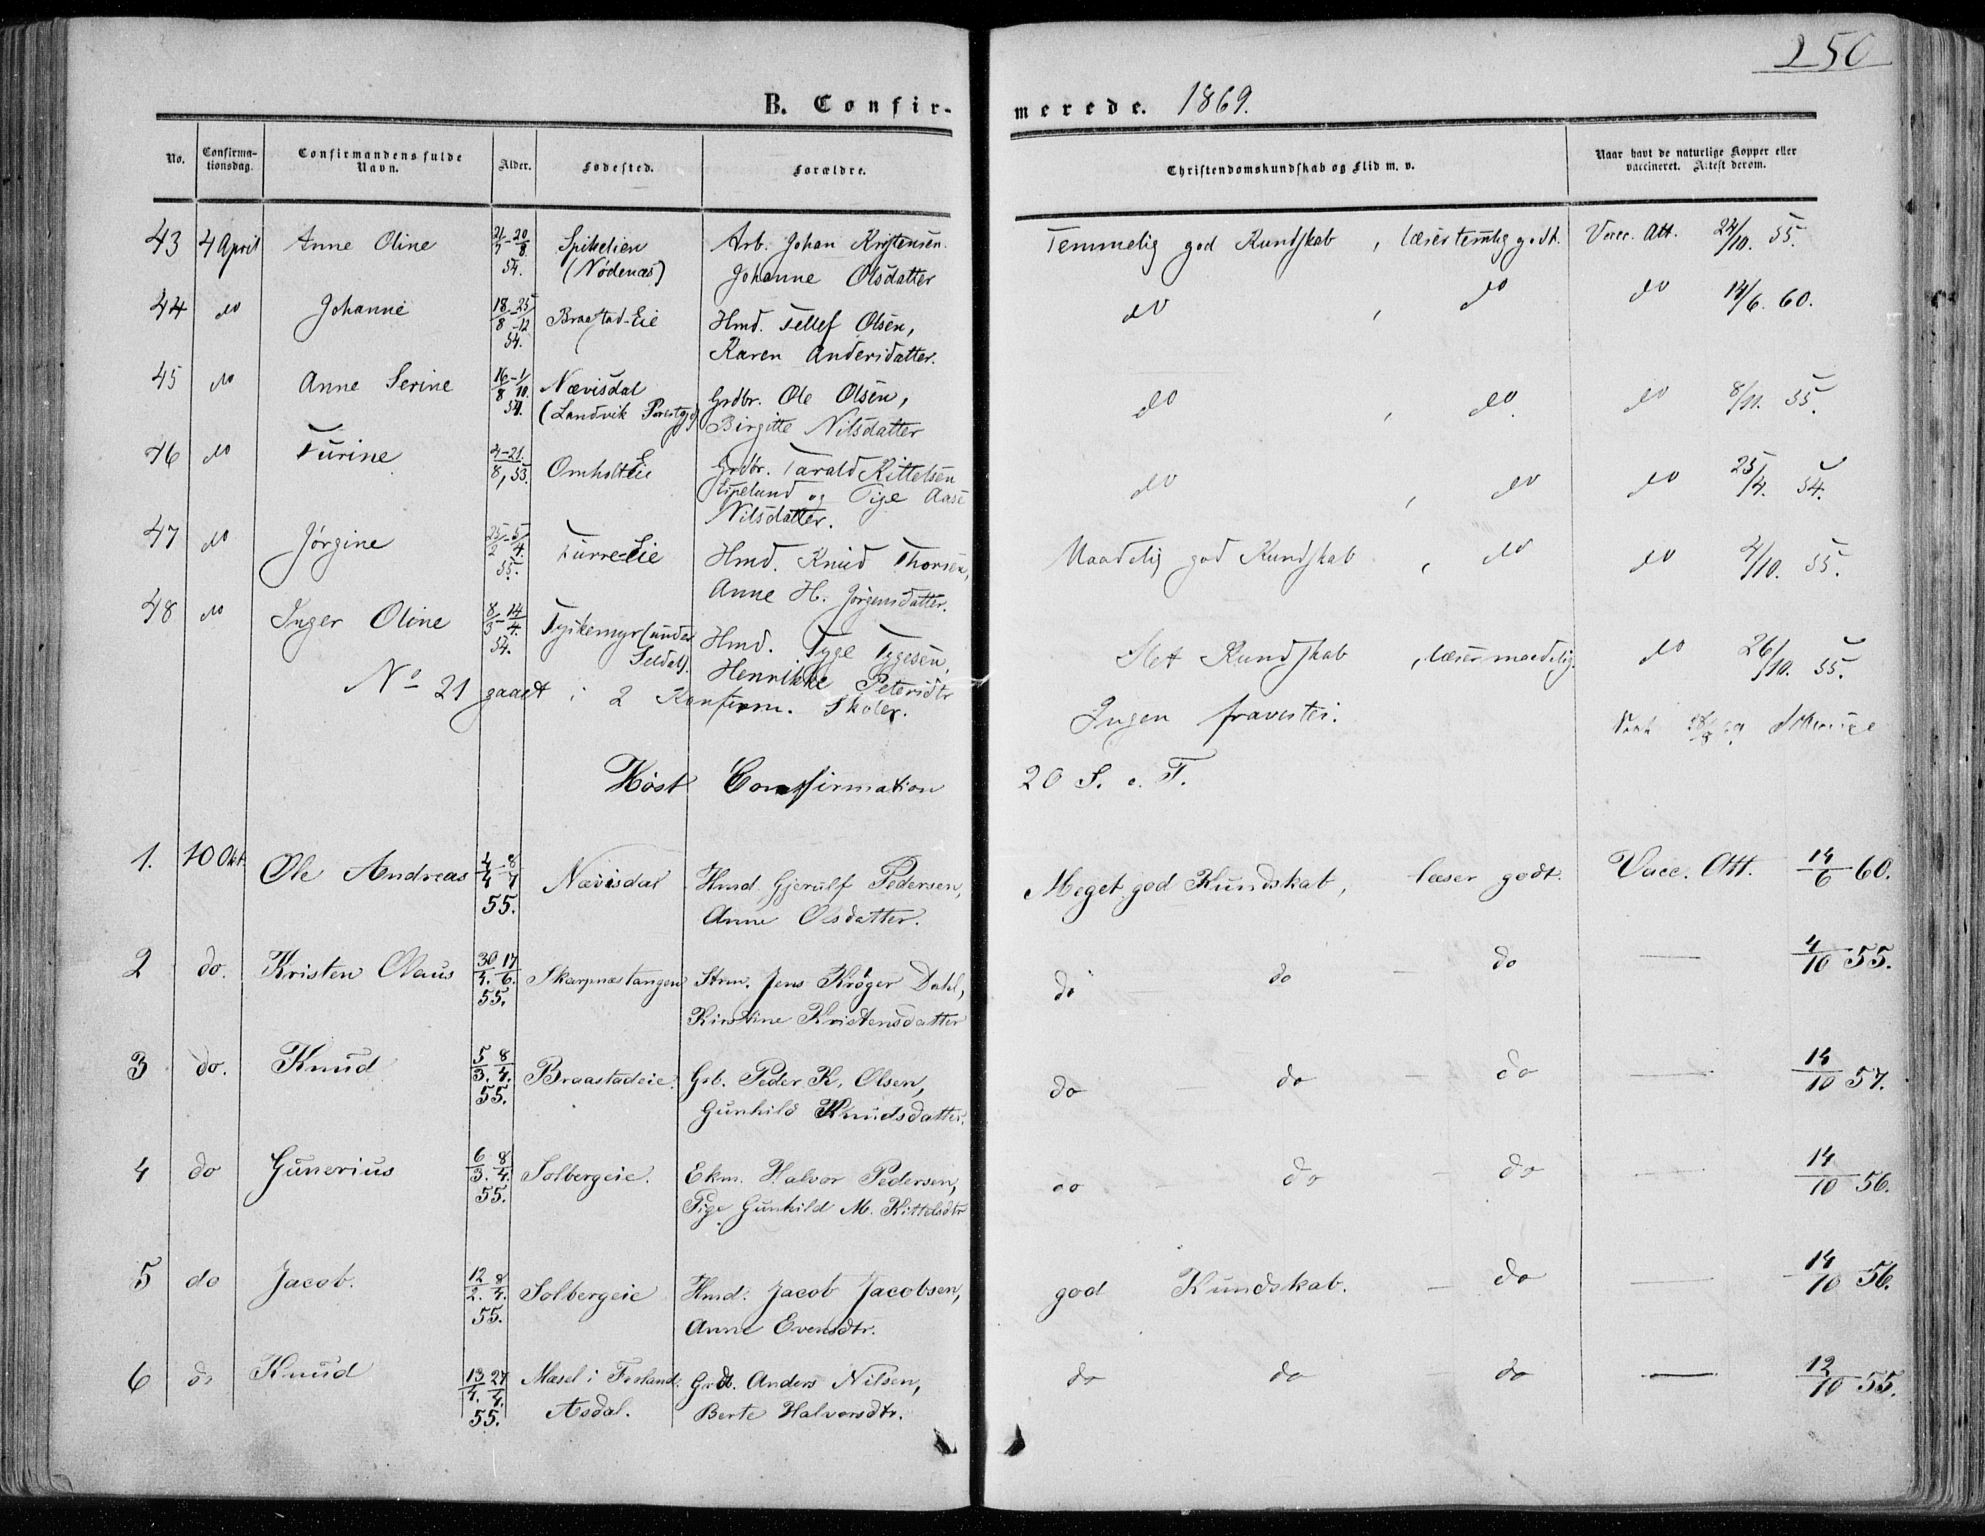 250
B. Confirmerede. 1869.
No. Confirmationsdag. Confirmandens fulde Navn. Alder. Fødested. Forældre. Christendomskundskab og Flid m. v. Naar havt de naturlige Kopper eller vaccineret. Attest derom.
43 4 April Anne Oline 21/7 - 20/8 54. Spikelien Arb. Johan Kristensen. Temmelig god Kundskab, læser temlig godt. Vacc. Att. 24/10. 55.
(Nødenæs) Johanne Olsdatter
44 do Johanne 18/8 - 25/12 54. Braastad-Eie Hmd. Tellef Olsen, do, do do 14/6. 60.
Karen Andersdatter.
45 do Anne Serine 16/8 - 1/10. 54. Nævisdal Grdbr. Ole Olsen, do, do do 8/11. 55.
(Landvik Præstgj) Birgitte Nilsdatter
46 do Turine 4 - 21. 8, 53. Omholt Eie Grdbr. Tarald Kittelsen do, do do 25/4. 54.
og Pige Aase
Nilsdatter.
47 do Jørgine 25/2 - 5/4. 55. Furre-Eie Hmd. Knud Thorsen, Maadelig god Kundskab, do do 4/10. 55.
Anne H. Jørgensdatter.
48 do Inger Oline 8/3 - 14/4. 54. Tyskemyr (under Hmd. Tyge Tygesen, Slet Kundskab, læser maadelig. do 26/10. 55.
Seldal). Henrikke Petersdtr
No 21 gaaet i 2 Konfirm. Skoler. Ingen fraværter.
Høst Confirmation 20 S. e. T.
1. 10 Okt. Ole Andreas 4/4 8/7 55. Nævisdal Hmd. Gjerulf Pedersen, Meget god Kundskab, læser godt. Vacc. Att. 14/6 60.
Anne Olsdatter.
2 do. Kristen Claus 30/4. 17/6. 55. Skarpnæstangen Strm. Jens Krøger Dahl, do do - do — 4/10 55.
Kirstine Kristensdatter
3 do. Knud 5/3. 8/4. 55. Braastadeie. Grb. Peder K. Olsen, do do - do — 14/10 57.
Gunhild Knudsdatter.
4 do Gunerius 6/3. 8/4. 55. Solbergeie. Ekm. Halvor Pedersen, do - do - do — 14/10 56.
Pige Gunhild M. Kittelsdtr
5 do Jacob. 12/2. 8/4. 55. Solbergeie Hmd. Jacob Jacobsen, god Kundskab. - do — 14/10 56.
Anne Evensdtr.
6 do Knud 13/4. 27/4. 55. Mæsel i Grdb. Anders Nilsen, do do - do — 12/10 55.
Asdal. Berte Halvorsdtr.